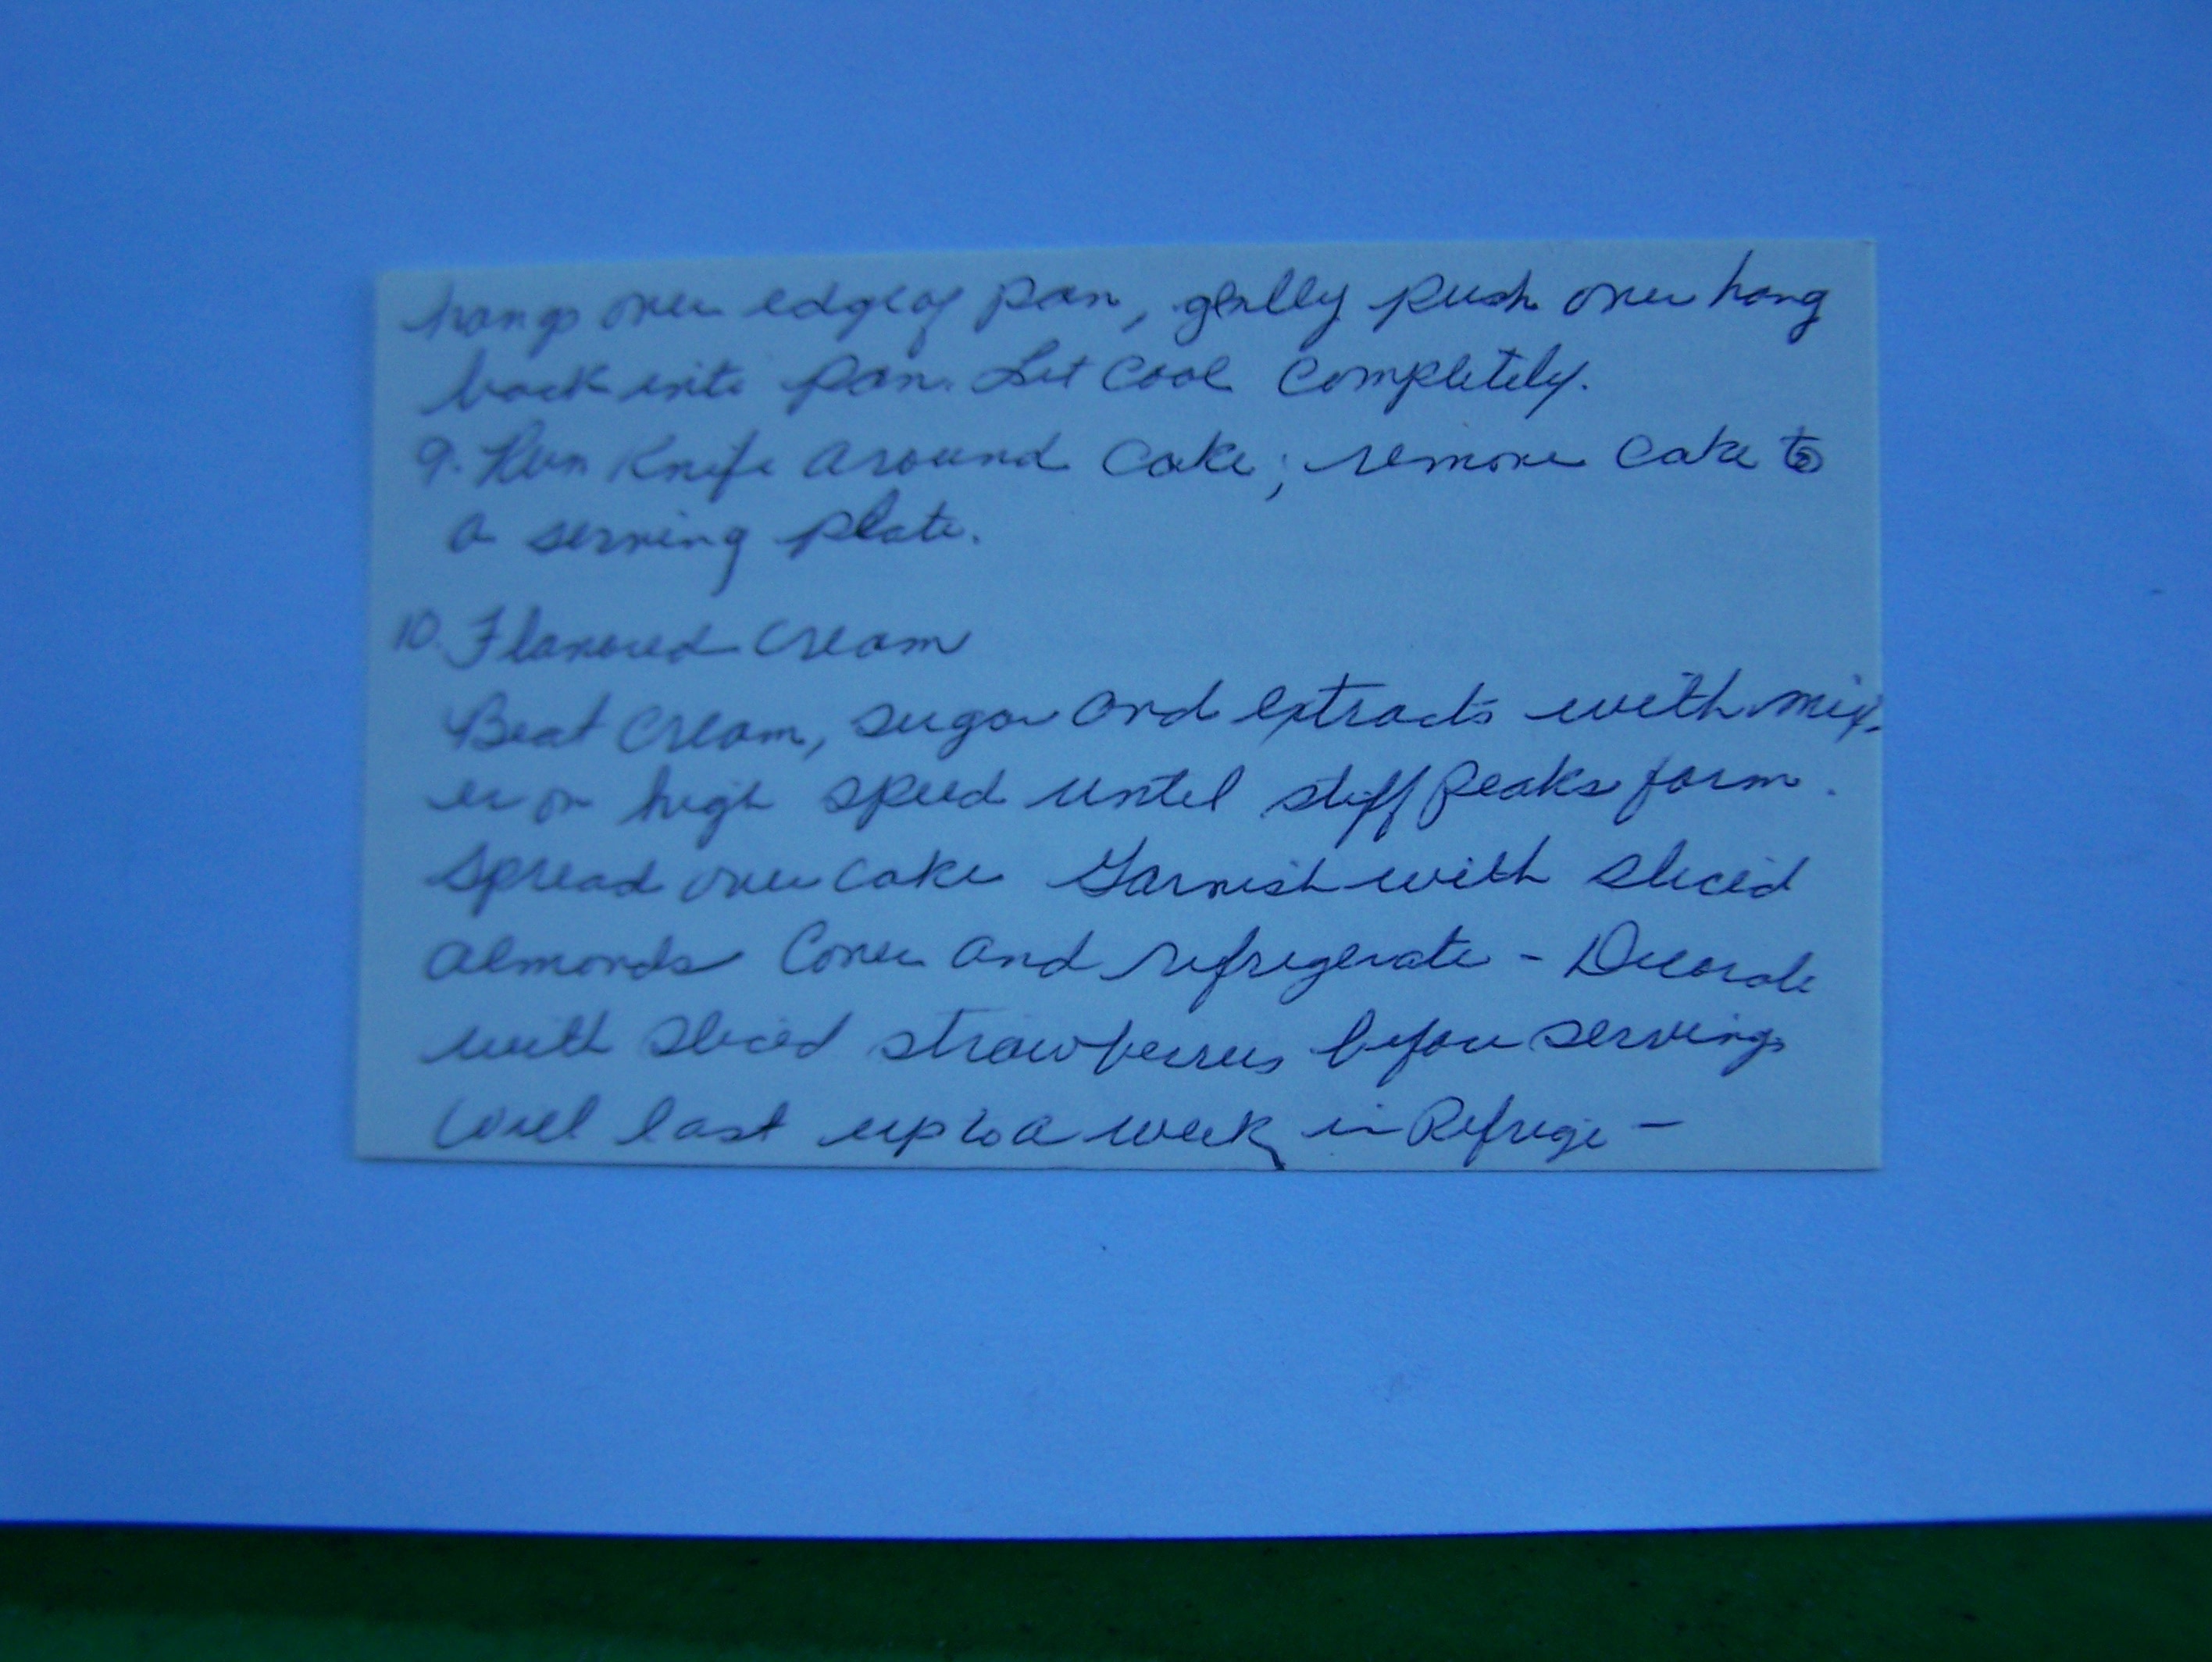 hangs over edge of pan, gently push over hang
back into pan. Let cool completely.
9. Run Knife around cake; remove cake to
a serving plate.
10. Flavored Cream
Beat cream, sugar and extracts with mix-
er on high speed until stiff peaks form.
Spread over cake Garnish with sliced
almonds Cover and refrigerate - Decorate
with sliced strawberries before serving
Will last up to a week in Refrige -